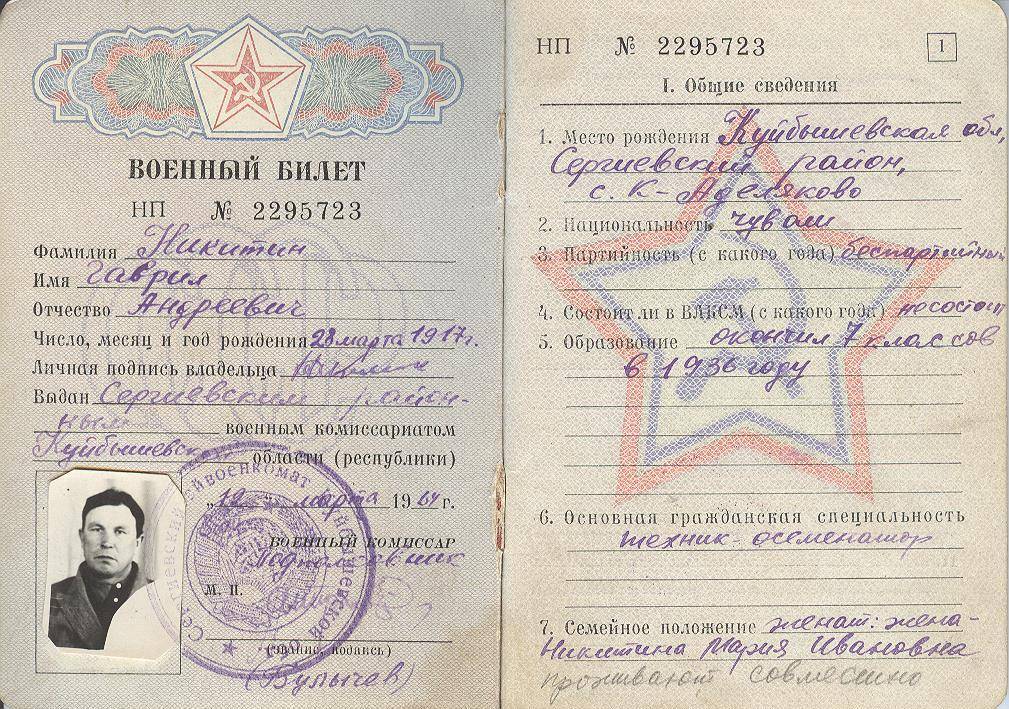 ВОЕННЫЙ БИЛЕТ
НП № 2295723
Фамилия Никитин
Имя Гаврил
Отчество Андреевич
Число, месяц и год рождения 28 марта 1917г.
Личная подпись владельца
Выдан Сергиевским район-
ным военным комиссариатом
Куйбышевск области (республики)
„12" марта 1964 г.
ВОЕННЫЙ КОМИССАР
Подполковник
М. П.
(звание, подпись)
(Булычев)
НП № 2295723
1
I. Общие сведения
1. Место рождения Куйбышевская обл,
Сергиевский район,
с. К-Аделяково
2. Национальность чуваш
3. Партийность (с какого года) беспартийный
4. Состоит ли в ВЛКСМ (с какого года) не состоит
5. Образование окончил 7 классов
в 1936 году
6. Основная гражданская специальность
техник-осеменатор
7. Семейное положение женат: жена-
Никитина Мария Ивановна
проживают совместно